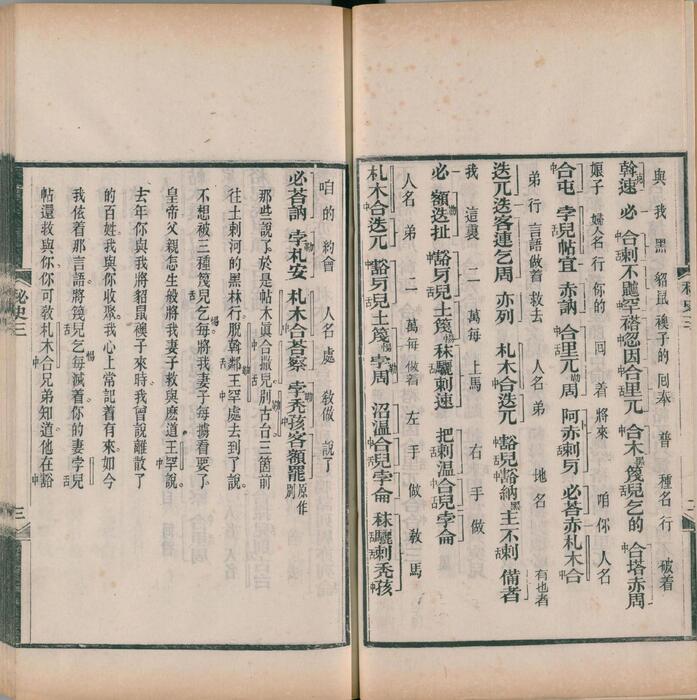 與我黑 貂鼠襖子的 囘奉 普 種名行 破着
斡速 必 合剌不 合里兀 合木 篾兒乞的 合塔赤周
娘子 婦人名行 你的 囘着 將來 咱你 人名
合屯 孛兒帖宜 赤訥 合里兀周 阿赤剌牙 必荅 赤札木合
弟行 言語做着 救去 人名弟 地名 有也者
迭兀迭客連乞周 亦列 札木合迭兀 豁兒豁納黑主不剌 備者
我 這裏 二 萬每 上馬 右手 做
必 額迭扯 豁牙兒土篾 秣驪剌速 把剌溫合兒孛侖
人名弟 二 萬每做着 左手做 敎馬
札木合迭兀 豁牙兒土篾 孛周 沼溫合兒孛侖 秣驪剌禿孩
咱的 約會 人名處 敎做 說了
必荅訥 孛札安 札木合荅察 孛禿孩客額罷 原作別
那些說了於是帖木真合撒兒別古台三箇前
往土剌河的黑林行脫斡鄰王罕處去到了說
不想被三種篾兒乞每將我妻子每擄着要了
皇帝父親怎生般將我妻子救與麽道王罕說
去年你與我將貂鼠襖子來時我曾說離散了
的百姓我與你收聚我心上常記着有來如今
我依着那言語將篾兒乞每滅着你的妻孛兒
帖還救與你你可敎札木合兄弟知道他在豁
祕史三
三